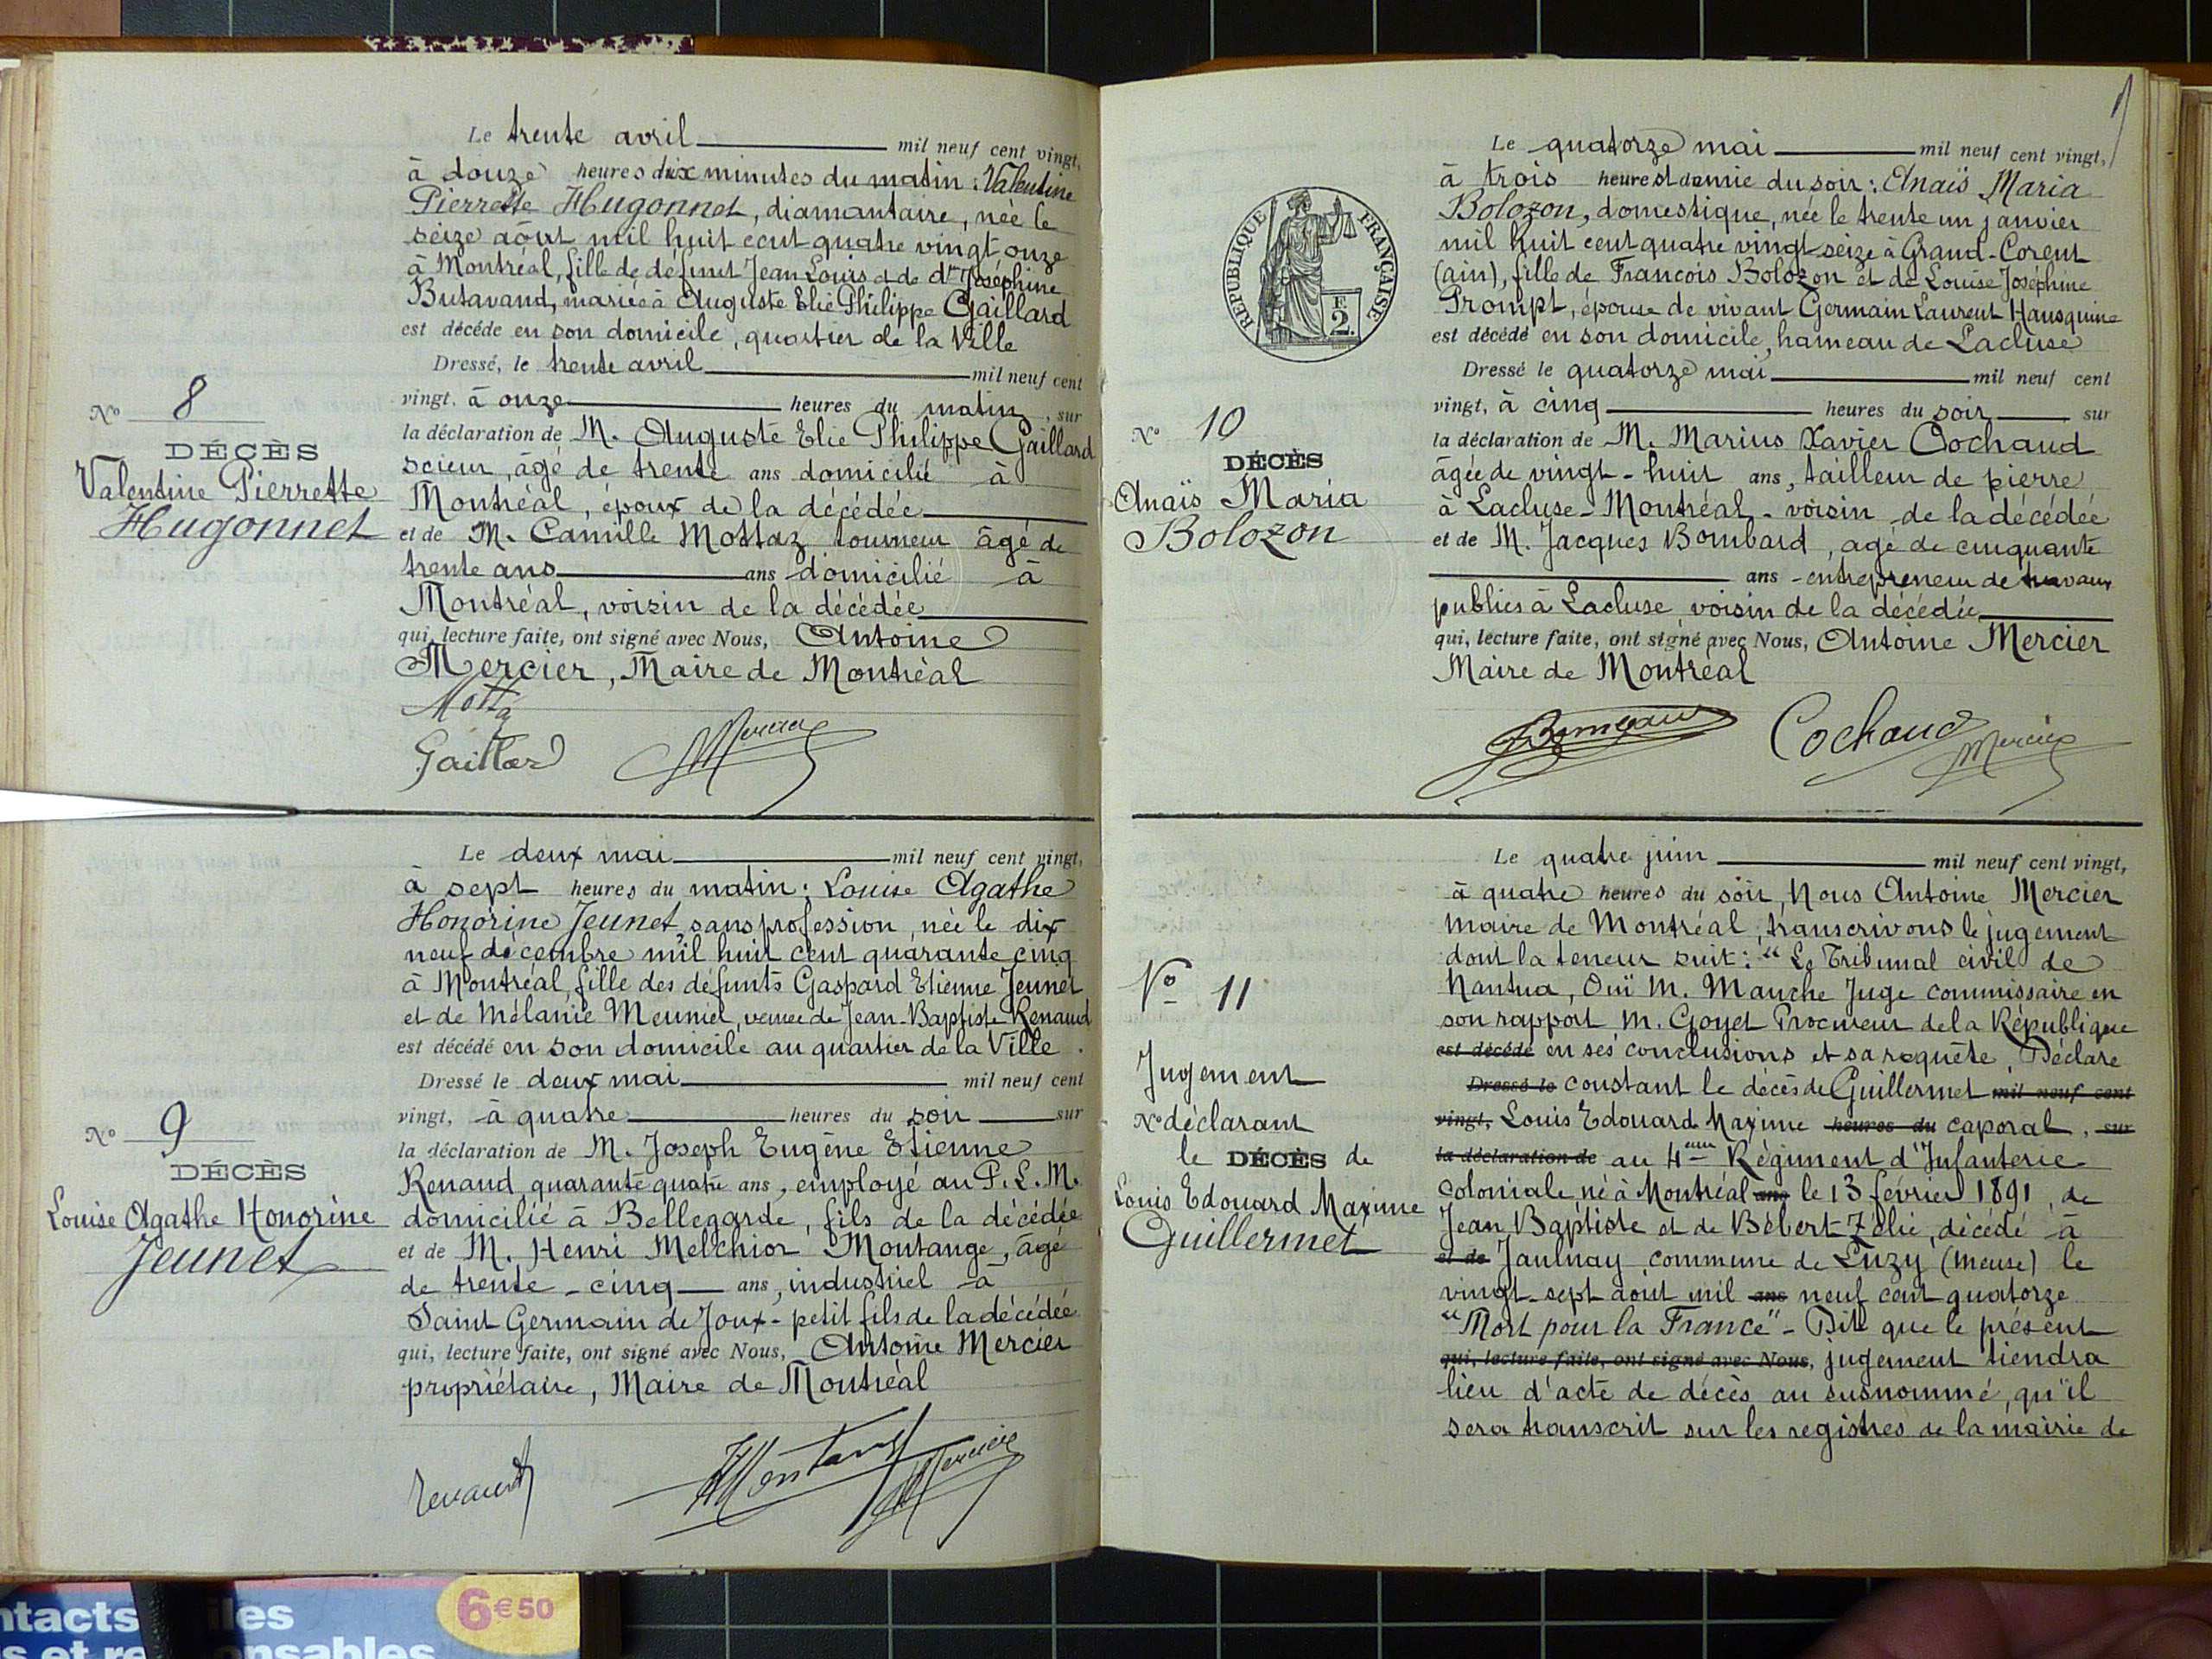 Le trente avril mil neuf cent vingt,
à douze heures dix minutes du matin : Valentine
Pierrette Hugonnet, diamantaire, née le
seize août mil huit cent quatre vingt onze
à Montréal, fille de défunt Jean Louis et de dte Joséphine
Butavand, mariée à Auguste Elie Philippe Gaillard
est décédé en son domicile, quartier de la Ville
Dressé, le trente avril mil neuf cent
vingt, à onze heures du matin, sur
la déclaration de M. Auguste Elie Philippe Gaillard
scieur, âgé de trente ans domicilié à
Montréal, époux de la décédée
et de M. Camille Mottaz tourneur âgé de
trente ans ans domicilié à
Montréal, voisin de la décédée
qui, lecture faite, ont signé avec Nous, Antoine
Mercier, Maire de Montréal
Gaillard Mercier
N° 8
DÉCÈS
Valentine Pierrette
Hugonnet
Le deux mai mil neuf cent vingt,
à sept heures du matin : Louise Agathe
Honorine Jeunet, sans profession, née le dix
neuf décembre mil huit cent quarante cinq
à Montréal, fille des défunts Gaspard Etienne Jeunet
et de Mélanie Meunier, veuve de Jean-Baptiste Renaud
est décédé en son domicile au quartier de la Ville.
Dressé le deux mai mil neuf cent
vingt, à quatre heures du soir sur
la déclaration de M. Joseph Eugène Etienne
Renaud quarante quatre ans, employé au P.L.M.
domicilié à Bellegarde, fils de la décédée
et de M. Henri Melchior Montange, âgé
de trente-cinq ans, industriel à
Saint Germain de Joux - petit fils de la décédée
qui, lecture faite, ont signé avec Nous, Antoine Mercier
propriétaire, Maire de Montréal
Renaud HMontange Mercier
N° 9
DÉCÈS
Louise Agathe Honorine
Jeunet
Le quatorze mai mil neuf cent vingt,
à trois heures et demie du soir : Anaïs Maria
Bolozon, domestique, née le trente un janvier
mil huit cent quatre vingt-seize à Grand-Corent
(ain), fille de Francois Bolozon et de Louise Joséphine
Prompt, épouse de vivant Germain Laurent Hansquine
est décédé en son domicile, hameau de Lacluse
Dressé le quatorze mai mil neuf cent
vingt, à cinq heures du soir sur
la déclaration de M. Marius Xavier Cochaud
âgée de vingt-huit ans, tailleur de pierre
à Lacluse-Montréal - voisin de la décédée
et de M. Jacques Bombard, agé de cinquante
ans - entrepreneur de travaux
publics à Lacluse voisin de la décédée
qui, lecture faite, ont signé avec Nous, Antoine Mercier
Maire de Montréal
Cochaud Mercier
RÉPUBLIQUE FRANÇAISE
2 F.
N° 10
DÉCÈS
Anaïs Maria
Bolozon
Le quatre juin mil neuf cent vingt,
à quatre heures du soir, Nous Antoine Mercier
maire de Montréal, transcrivons le jugement
dont la teneur suit : "Le Tribunal civil de
Nantua, Ouï M. Manche Juge commissaire en
son rapport M. Goyet Procureur de la République
est décédé en ses conclusions et sa requête, Déclare
Dressé le constant le décès de Guillermet mil neuf cent
vingt, Louis Edouard Maxime heures du caporal, sur
la déclaration de au 4eme Régiment d'Infanterie
coloniale, né à Montréal ans le 13 février 1891, de
Jean Baptiste et de Bébert Zélie, décédé à
et de Jaulnay commune de Luzy (Meuse) le
vingt-sept août mil ans neuf cent quatorze
"Mort pour la France" - Dit que le présent
qui, lecture faite, ont signé avec Nous, jugement tiendra
lieu d'acte de décès au susnommé, qu'il
sera transcrit sur les registres de la mairie de
N° 11
Jugement
N° déclarant
le DÉCÈS de
Louis Edouard Maxime
Guillermet
ntacts
s et re
les
onsables
6€50